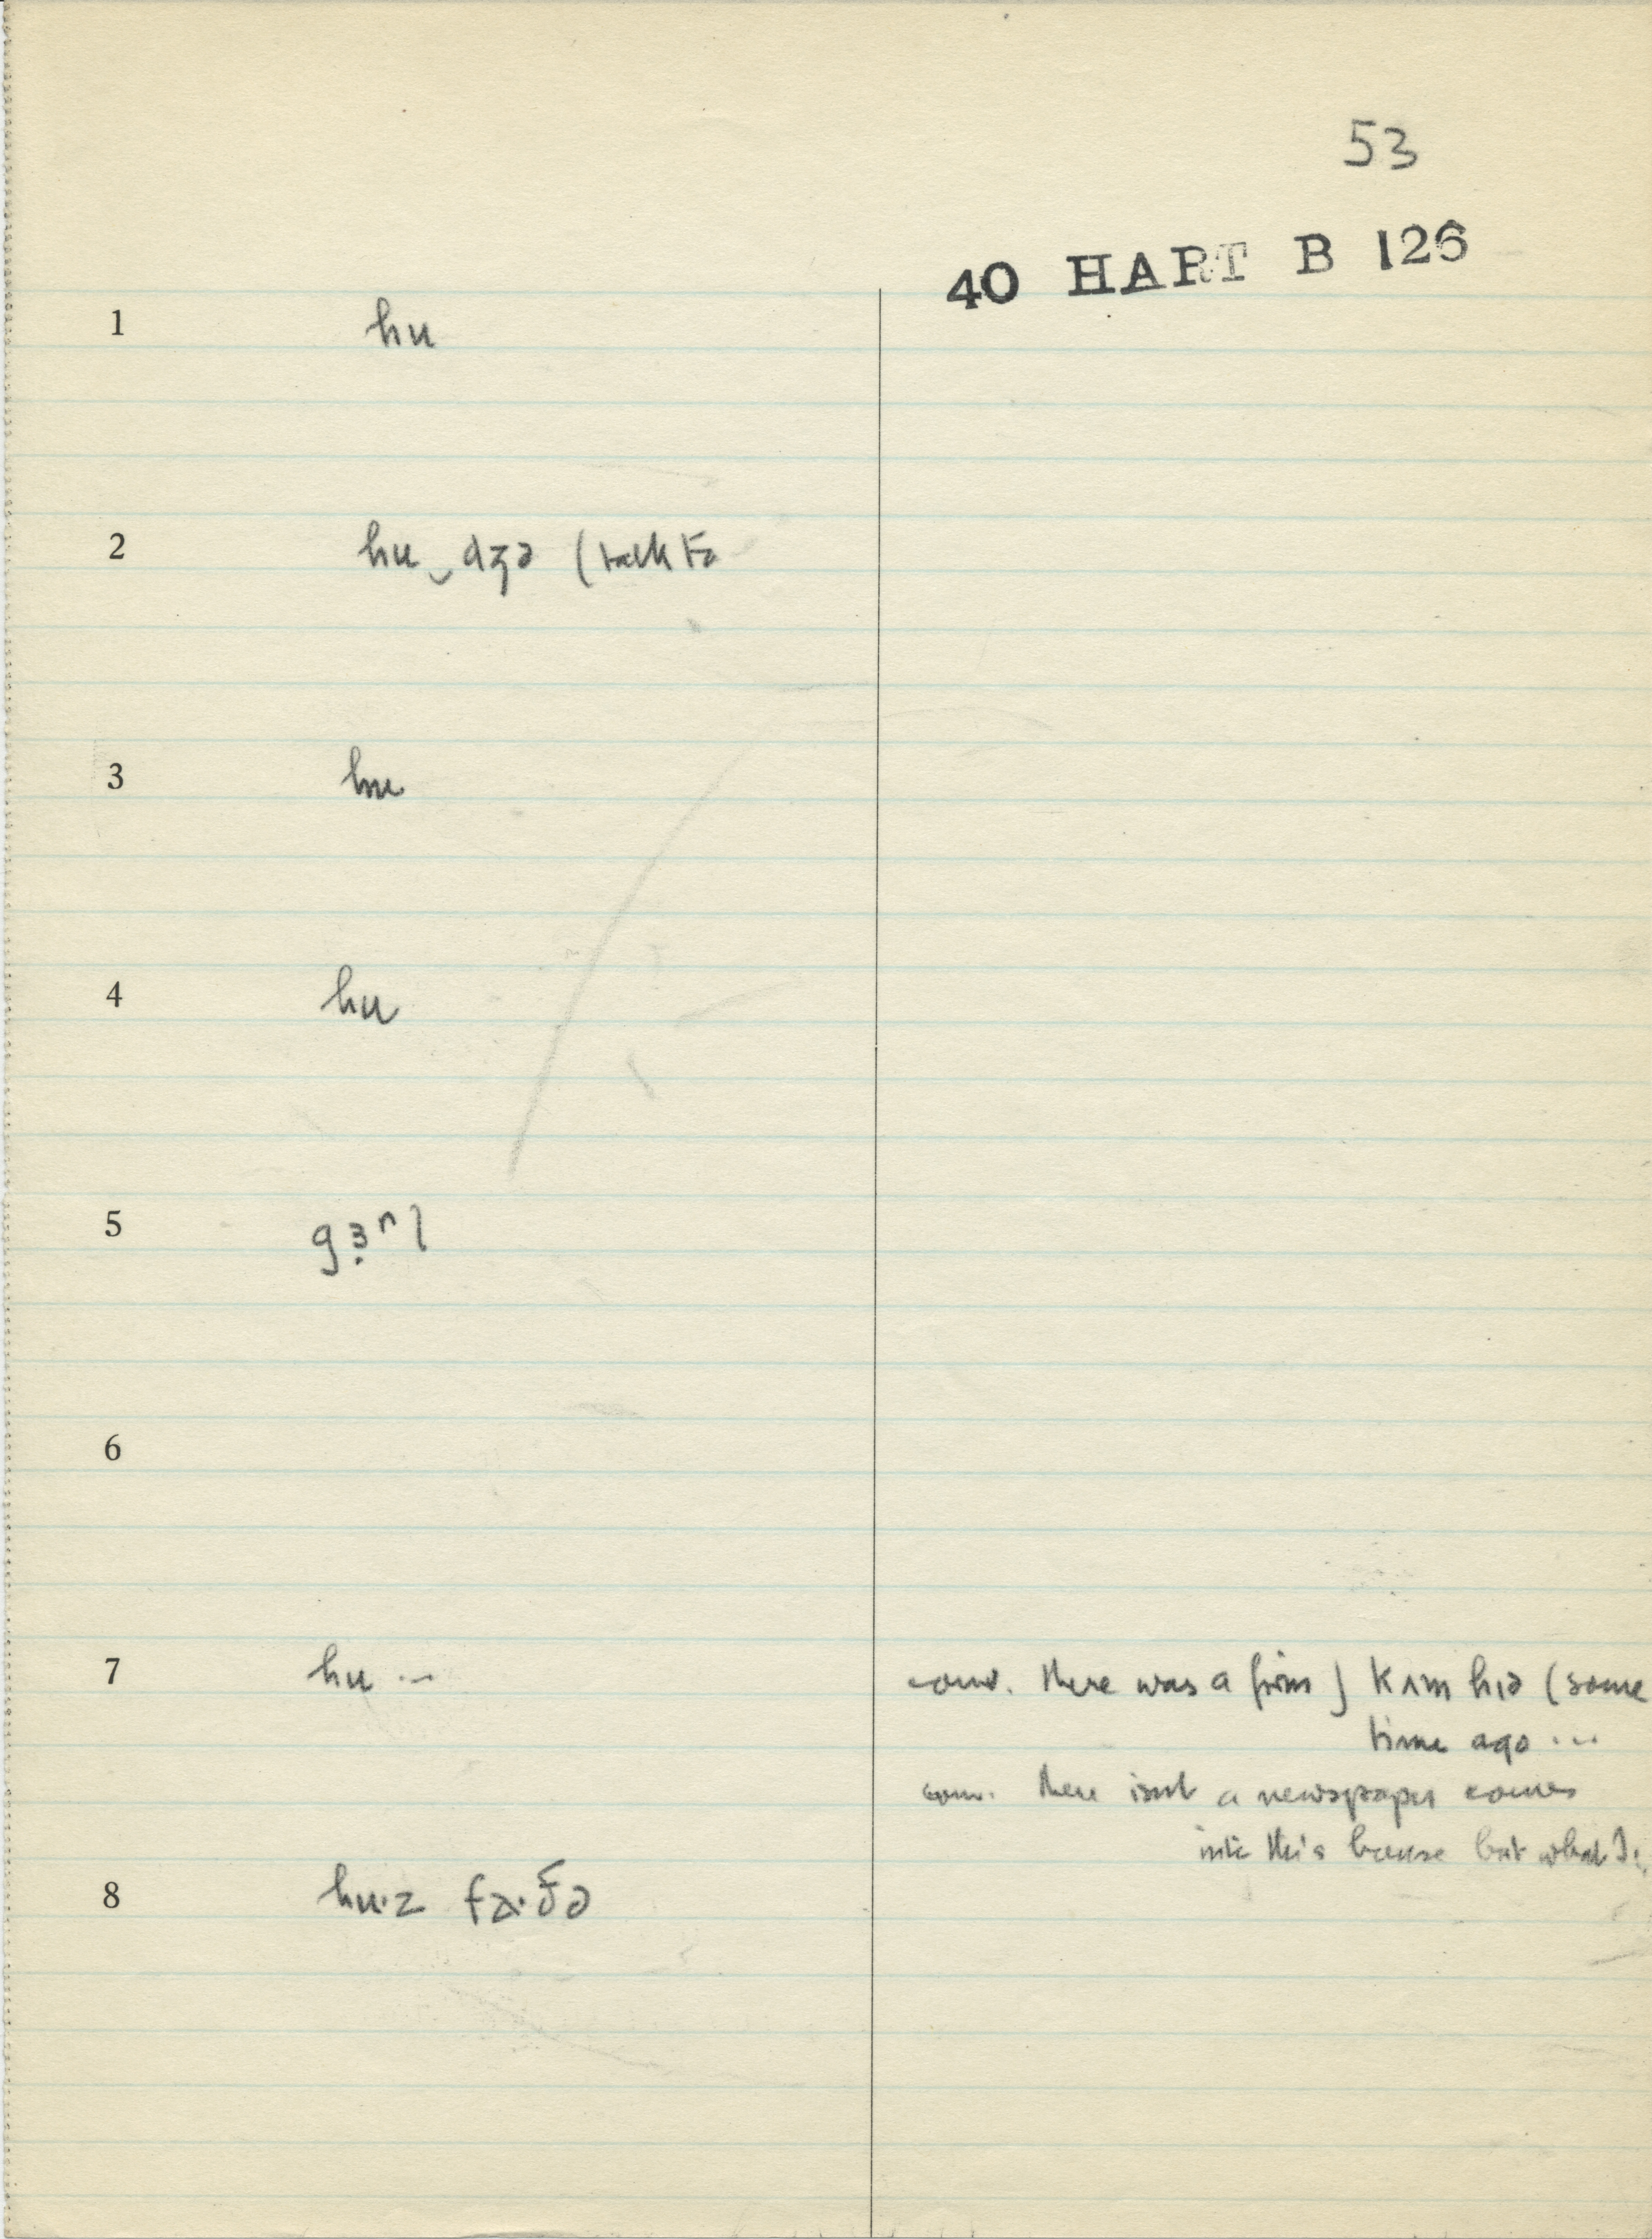 53
40 HART B 126
1 hu
2 hu‿dʒə (talk to
3 hu
4 hu
5 gɜ̣ⁿl
6
7 hu ... conv. there was a firm ʃ kʌm hɪə (some
time ago ...
conv. there isnt a newspaper comes
into this house but what I
8 hu·z fɑ·ðə